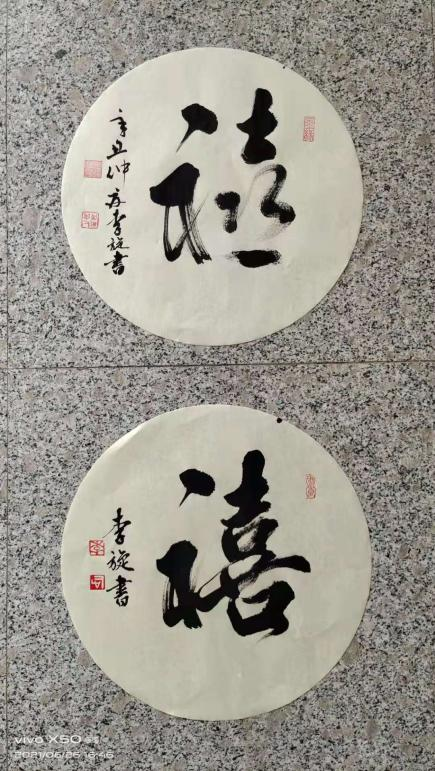 禧
辛丑仲夏李旋書
禧
李旋書
vivo X50
2021/06/26 16:46